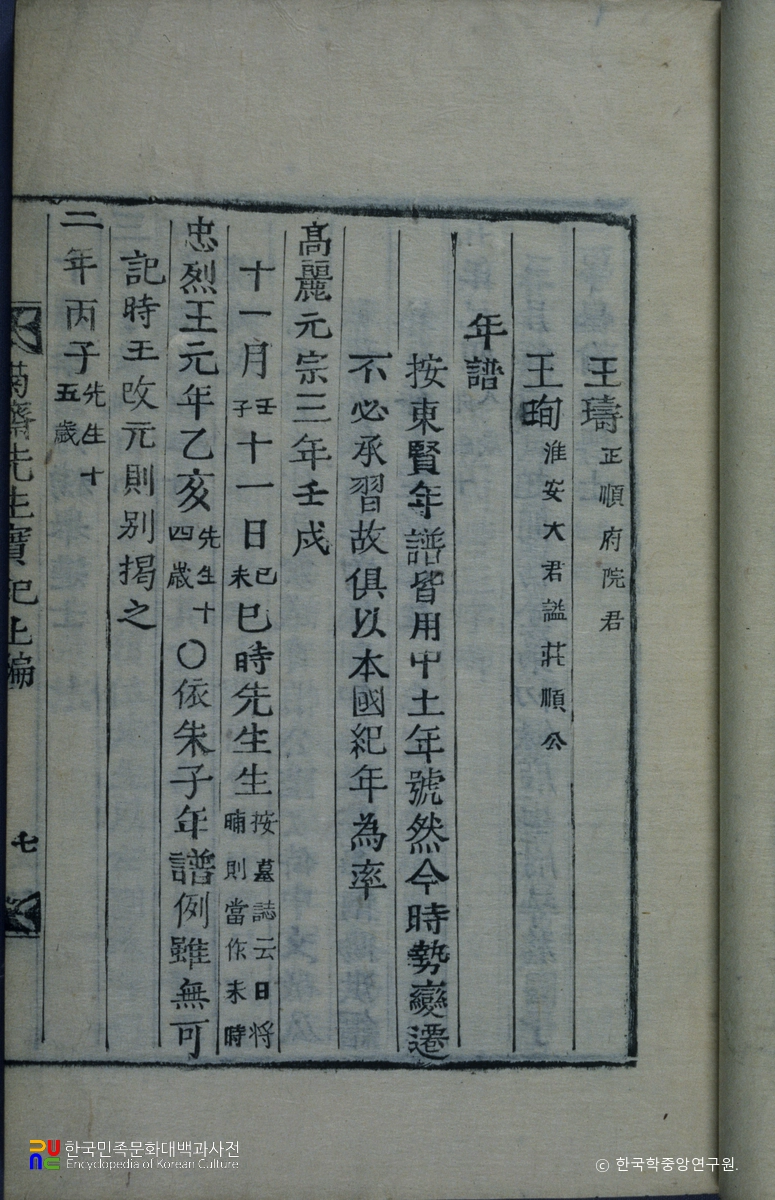 王璹正順府院君
王珣淮安大君謚莊順公
年譜
按東賢年譜皆用中土年號然今時勢變遷
不必承習故俱以本國紀年為率
高麗元宗三年壬戌
十一月壬子十一日己未巳時先生生按墓誌云日將晡則當作未時
忠烈王元年乙亥先生十四歲○依朱子年譜例雖無可
記時王改元則別揭之
二年丙子先生十五歲
菊齋先生實紀上編 七
한국민족문화대백과사전
Encyclopedia of Korean Culture
© 한국학중앙연구원.